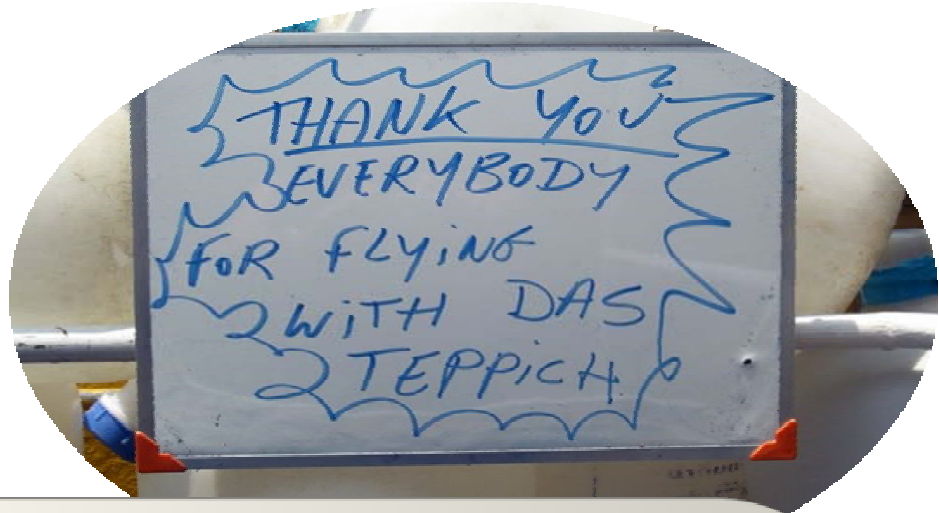 THANK YOU
EVERYBODY
FOR FLYiNG
WiTH DAS
TEPPiCH